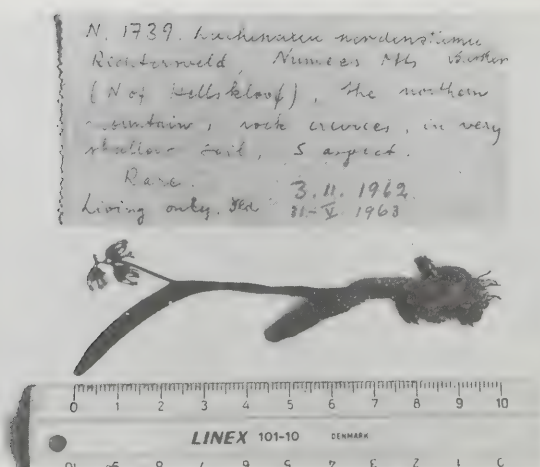 N. 1739. Lachenalia nordenstamii
Richtersveld, Numees Mts Barker
(N of Hellskloof), the northern
mountain, rock crevices, in very
shallow soil, S aspect.
Rare. 3.11.1962
Living only. 31-V. 1963
0 1 2 3 4 5 6 7 8 9 10
LINEX 101-10 DENMARK